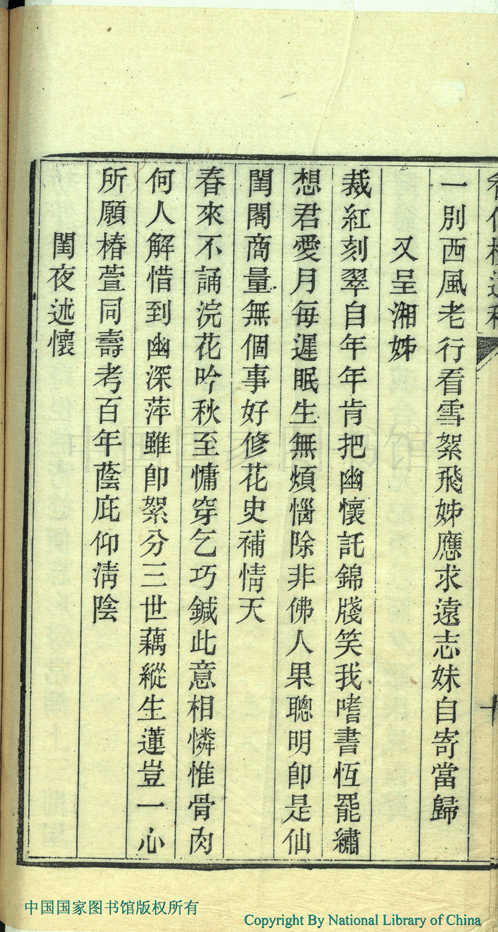 一別西風老行看雪絮飛姊應求遠志妹自寄當歸
又呈湘姊
裁紅刻翠自年年肯把幽懷託錦牋笑我嗜書恆罷繡
想君愛月每遲眠生無煩惱除非佛人果聰明卽是仙
閨閣商量無個事好修花史補情天
春來不誦浣花吟秋至慵穿乞巧鍼此意相憐惟骨肉
何人解惜到幽深萍雖卽絮分三世藕縱生蓮豈一心
所願椿萱同壽考百年蔭庇仰清陰
閨夜述懷
中国国家图书馆版权所有
Copyright By National Library of China